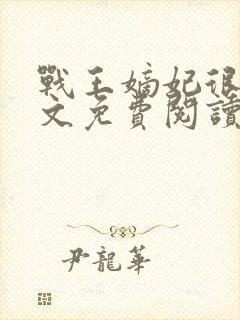 戰王嫡妃很
文免費閱讀
尹龍華